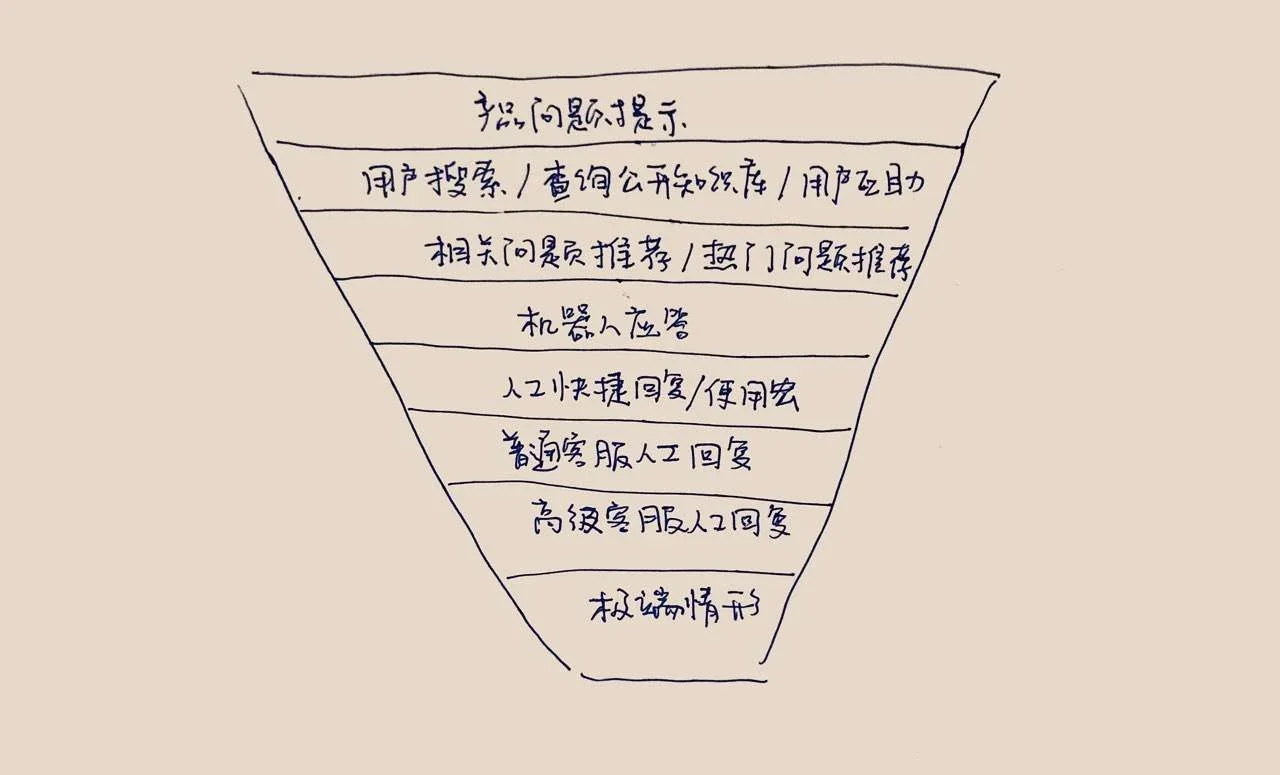 产品问题提示
用户搜索/查询公开知识库/用户互助
相关问题推荐/热门问题推荐
机器人应答
人工快捷回复/使用宏
普通客服人工回复
高级客服人工回复
极端情形